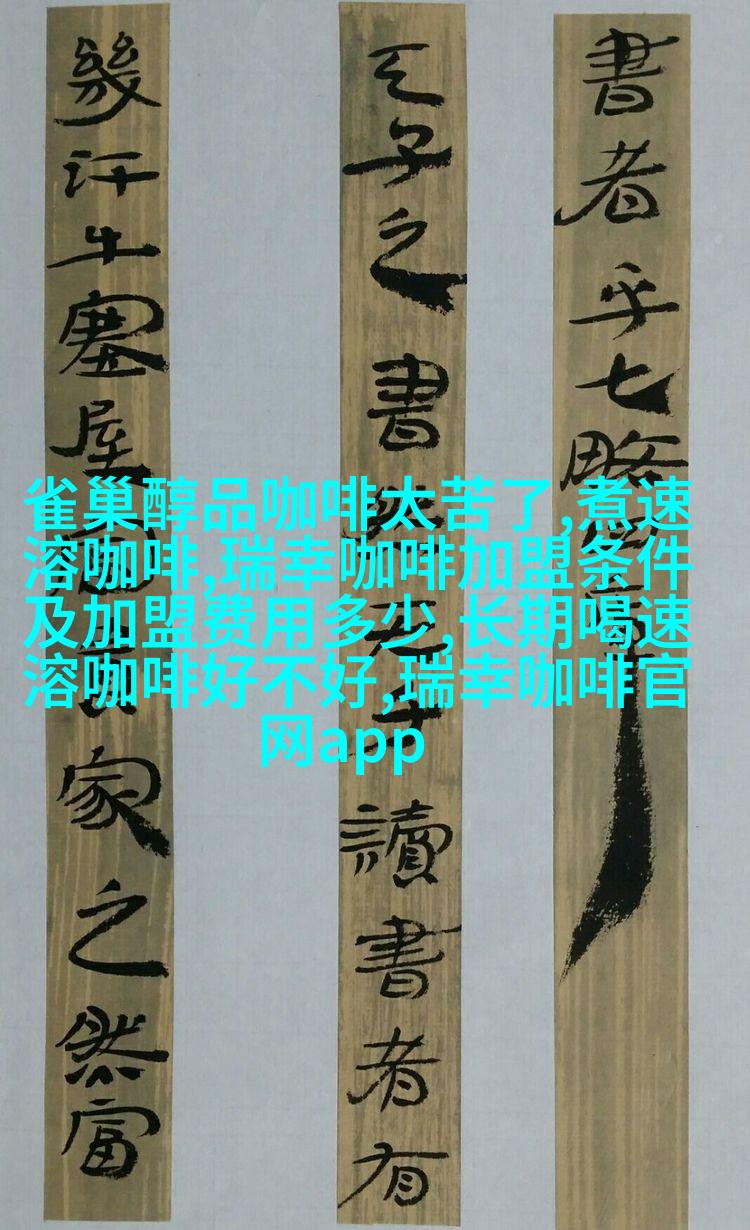 書者乎七略
天子之書 子讀書者有
幾汗牛塞屋 家之然富
雀巢醇品咖啡太苦了,煮速
溶咖啡,瑞幸咖啡加盟条件
及加盟费用多少,长期喝速
溶咖啡好不好,瑞幸咖啡官
网app